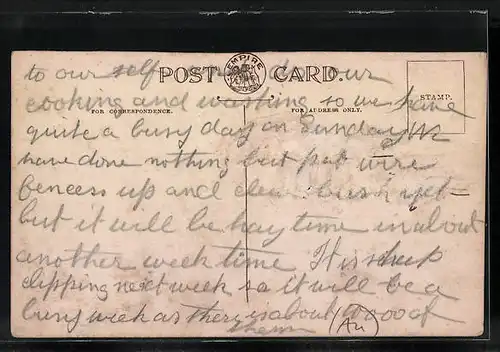 EMPIRE
POST CARD.
STAMP.
FOR CORRESPONDENCE.
FOR ADDRESS ONLY.
to our self and do our
cooking and washing so we have
quite a busy day on Sunday We
have done nothing but put wire
fencess up and clear bush yet –
but it will be hay time in about
another week time It is sheep
clipping next week so it will be a
busy week as there is about of
them
Au